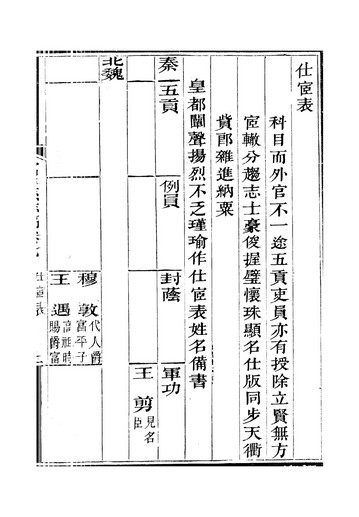 仕宦表
科目而外官不一途五貢吏員亦有授除立賢無方
宦轍分趨志士豪俊握璧懷珠顯名仕版同步天衢
貲郎雜進納粟
皇都闡聲揚烈不乏瑾瑜作仕宦表姓名備書
秦 五貢 例貢 封蔭 軍功
王剪 見名臣
北魏
穆敦 代人爵富平子
王遇 高祖時賜爵富
仕宦表